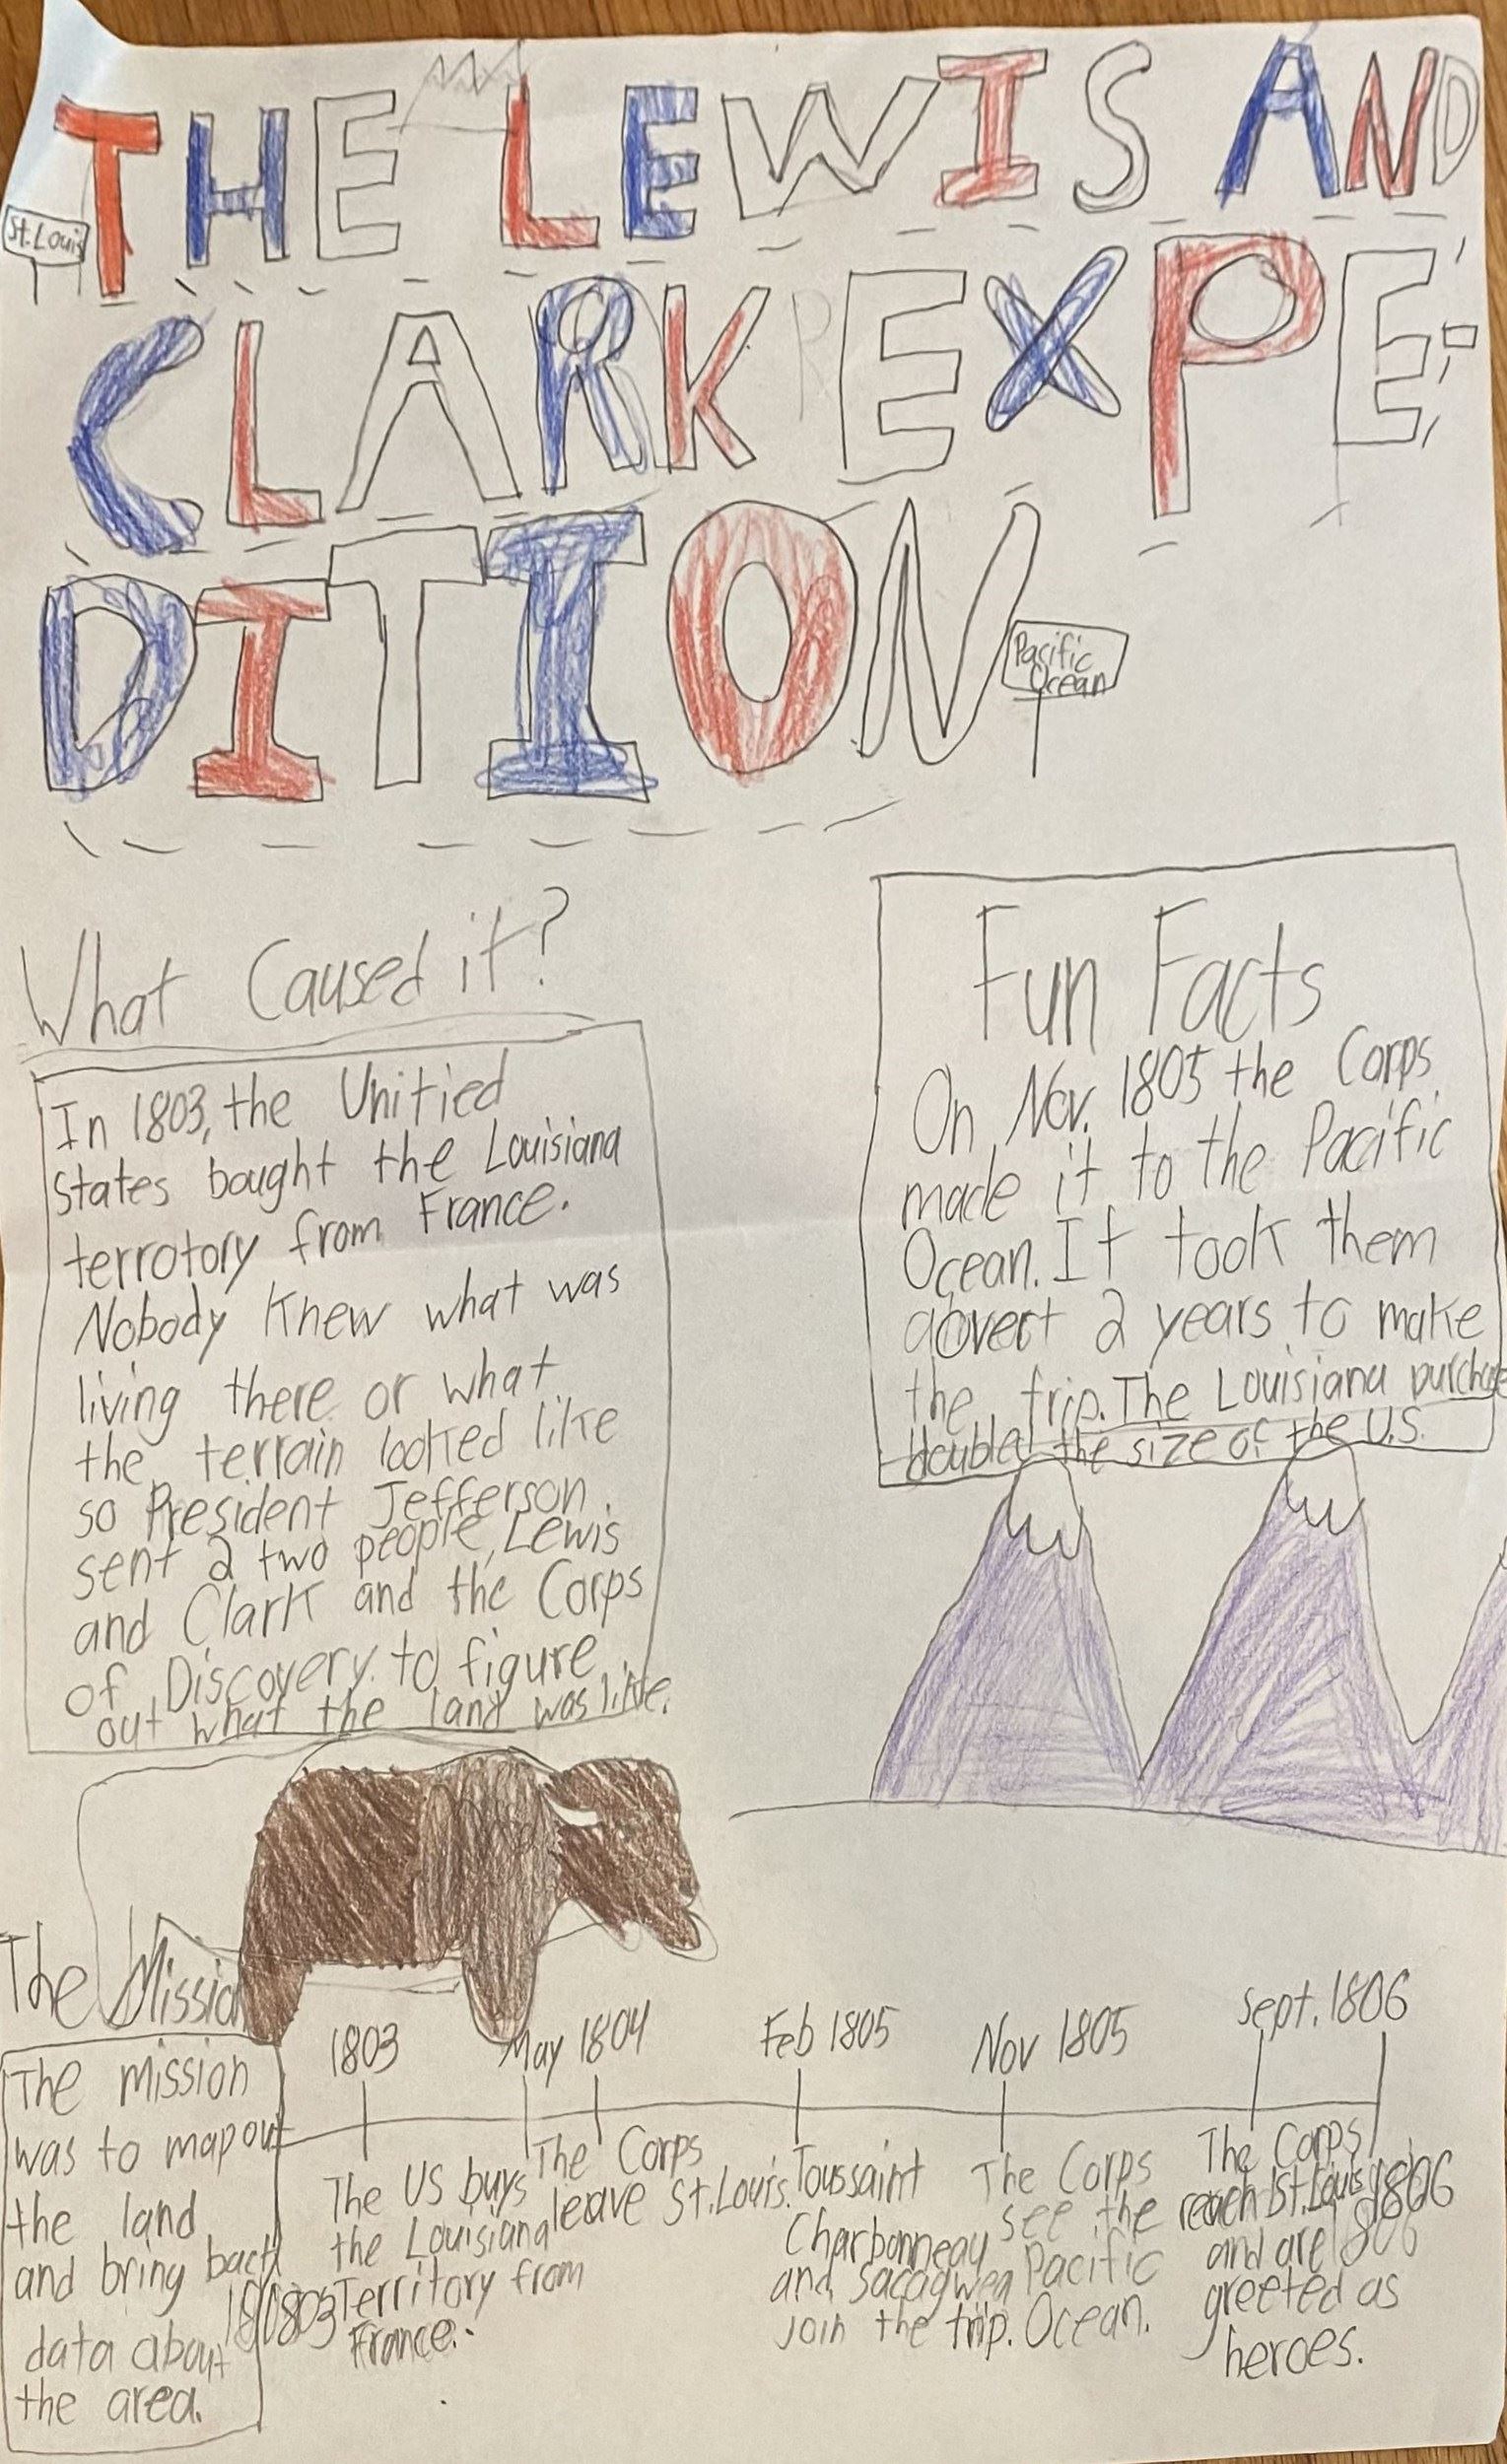 THE LEWIS AND
St. Louis
CLARK EXPE-
DITION
Pacific
Ocean
What Caused it?
In 1803, the Unitied
States bought the Louisiana
terrotory from France.
Nobody knew what was
living there or what
the terrain looked like
so President Jefferson
sent 2 two people, Lewis
and Clark and the Corps
of Discovery to figure
out what the land was like.
Fun Facts
On Nov. 1805 the Corps
made it to the Pacific
Ocean. It took them
2 years to make
the trip. The Louisiana purchase
doubled the size of the U.S.
The Mission
The mission
was to map out
the land
and bring back
data about
the area.
1803
May 1804
Feb 1805
Nov 1805
Sept. 1806
The US buys
the Louisiana
Territory from
France.
1803
The Corps
leave St. Louis.
Toussaint
Charbonneau
and Sacagwea
join the trip.
The Corps
see the
Pacific
Ocean.
The Corps
reach St. Louis
and are
greeted as
heroes.
1806
1806